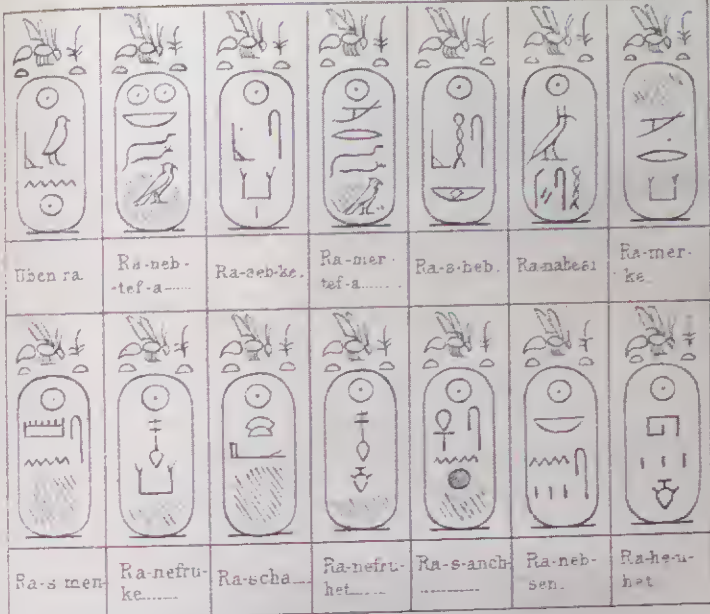 Uben ra
Ra-neb-
-tef-a......
Ra-seb-ke.
Ra-mer-
tef-a.......
Ra-s-heb.
Ra-nahesi
Ra-mer-
ke.
Ra-s men-
Ra-nefru-
ke.......
Ra-scha....
Ra-nefru-
het......
Ra-s-anch-
..........
Ra-neb-
sen.
Ra-he-u-
het